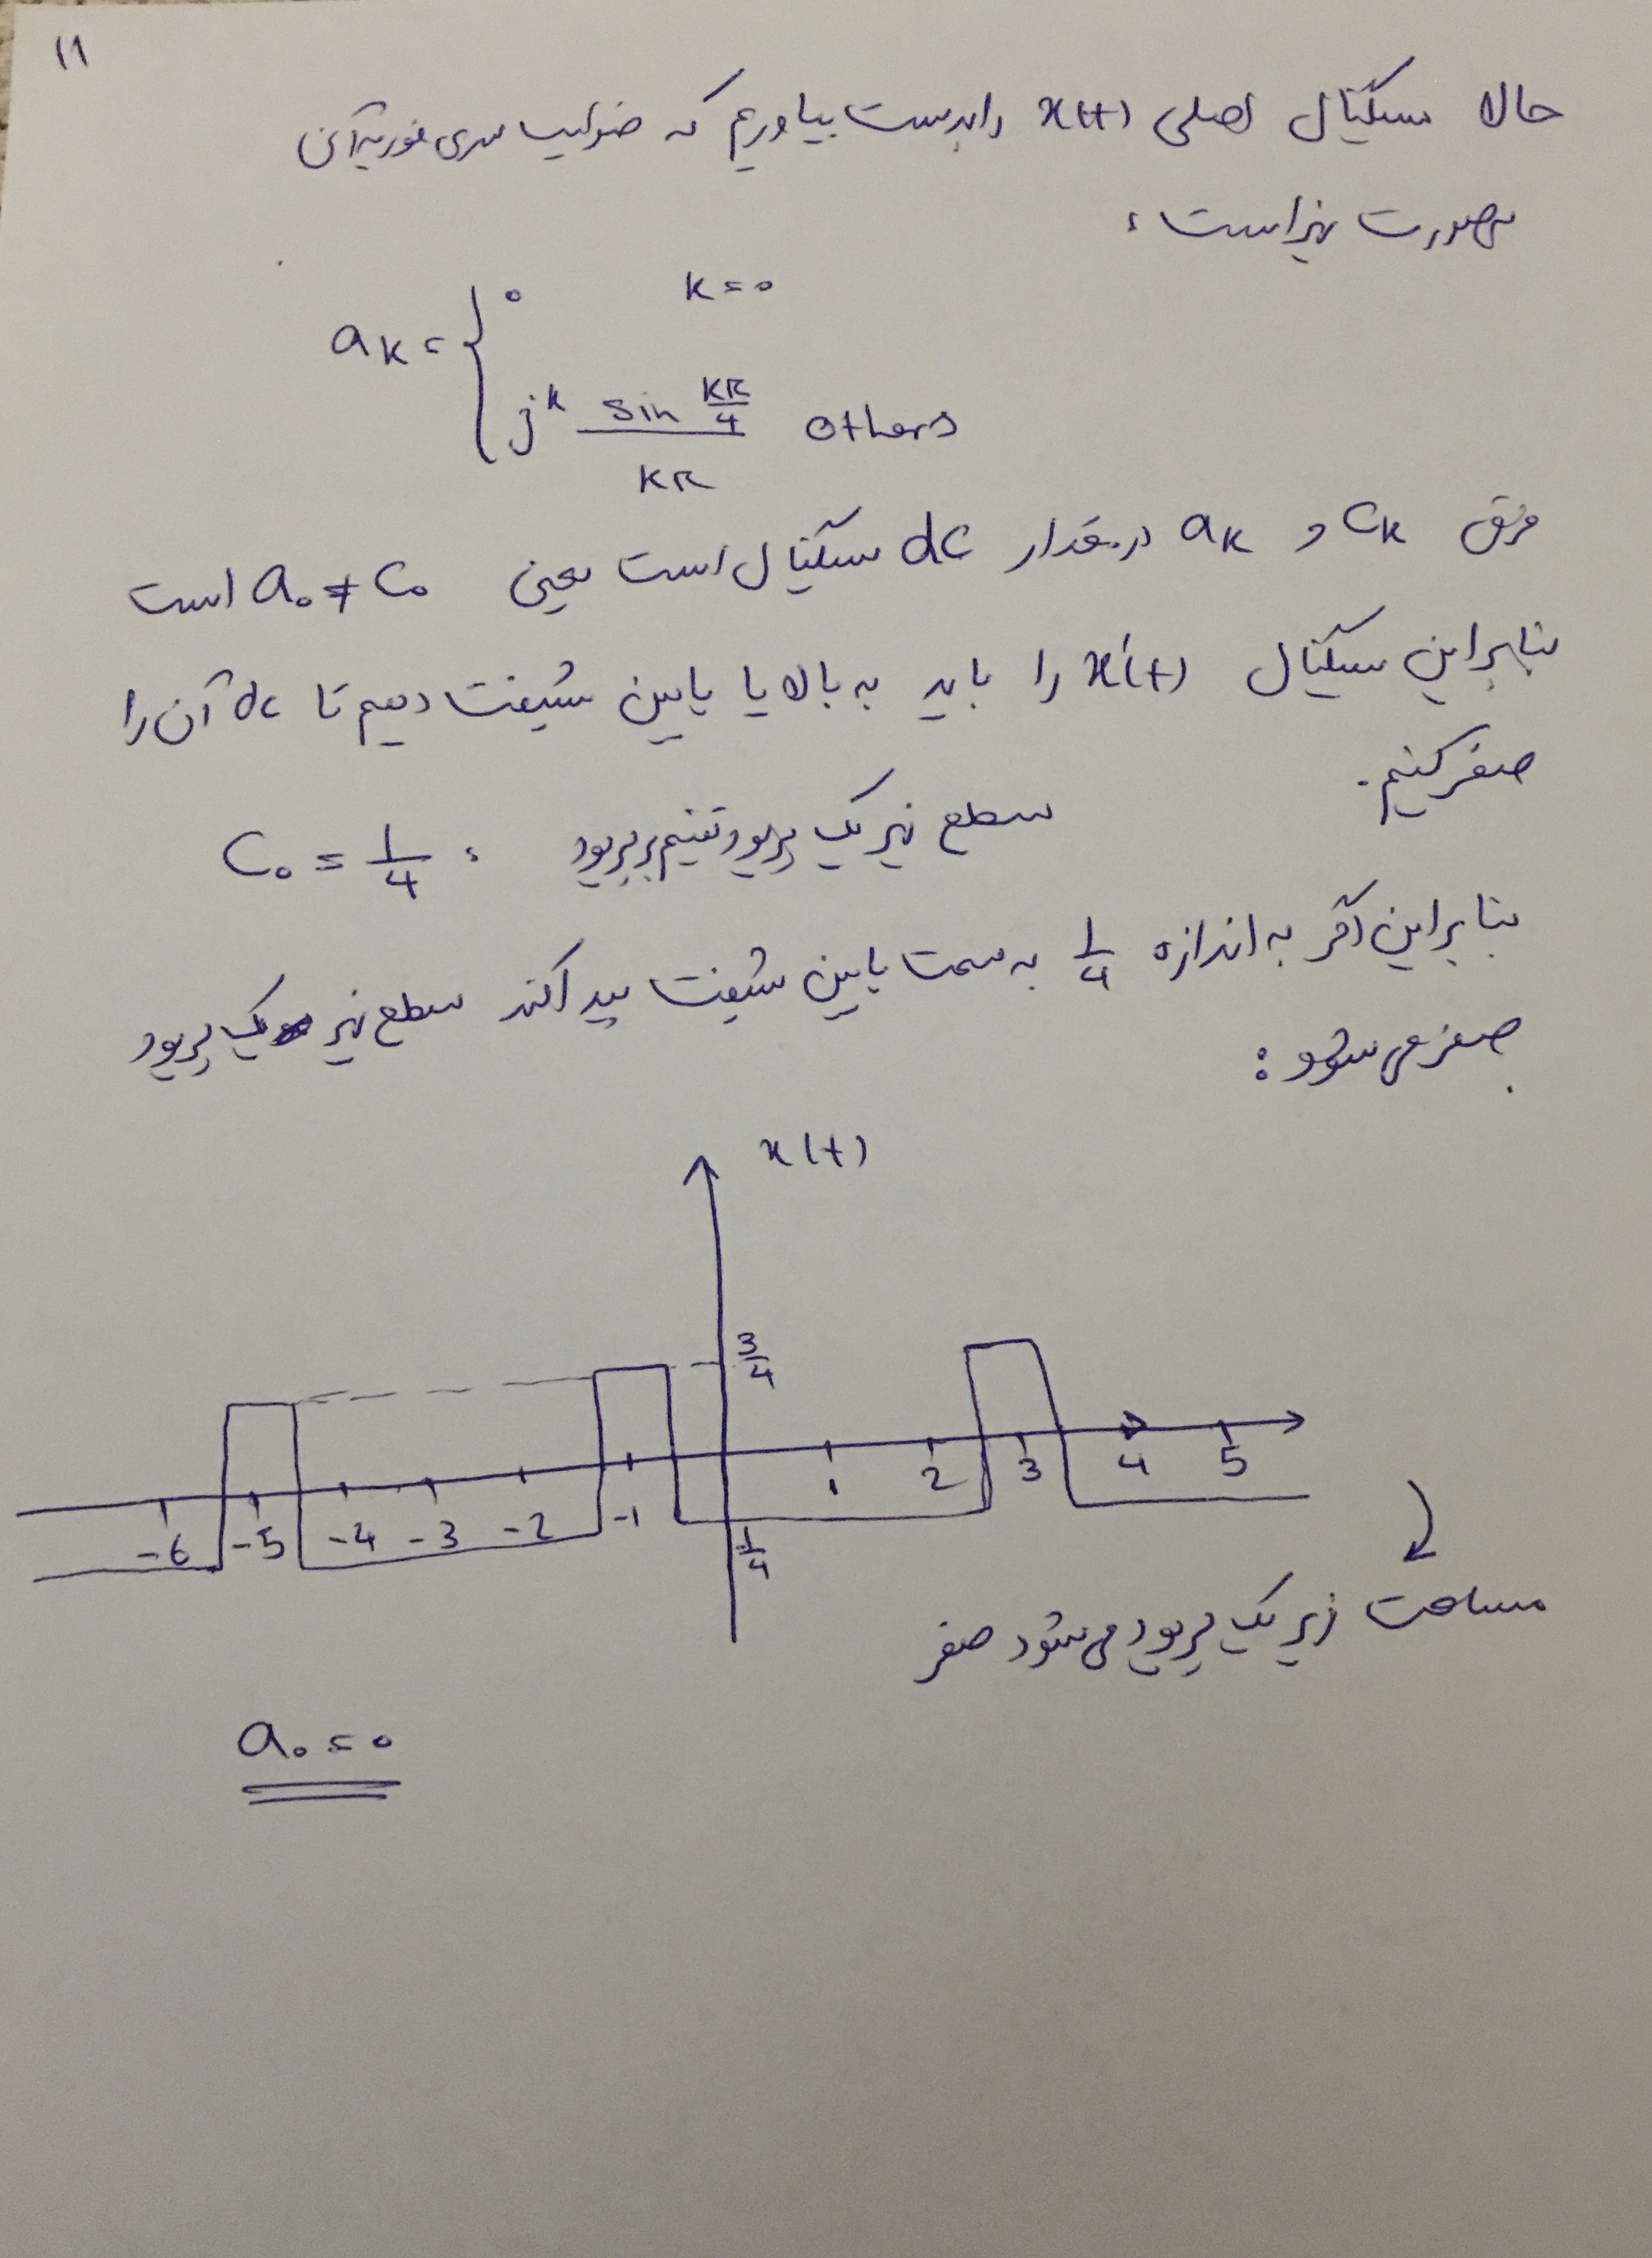 ۱۱
حالا سیگنال اصلی x(t) را بدست بیاوریم که ضرایب سری فوریه آن
بصورت زیر است:
a_k = { 0   k=0
j^k sin(kπ/4) / kπ   others
فرق c_k و a_k در مقدار dc سیگنال است یعنی a₀ ≠ c₀ است
بنابراین سیگنال x'(t) را باید به بالا یا پایین شیفت دهیم تا dc آن را
صفر کنیم.
سطح زیر یک پریود تقسیم بر پریود : c₀ = 1/4
بنابراین اگر به اندازه 1/4 به سمت پایین شیفت پیدا کند سطح زیر یک پریود
صفر می شود:
x(t)
3/4
-6 -5 -4 -3 -2 -1 1 2 3 4 5
-1/4
مساحت زیر یک پریود می شود صفر
a₀ = 0